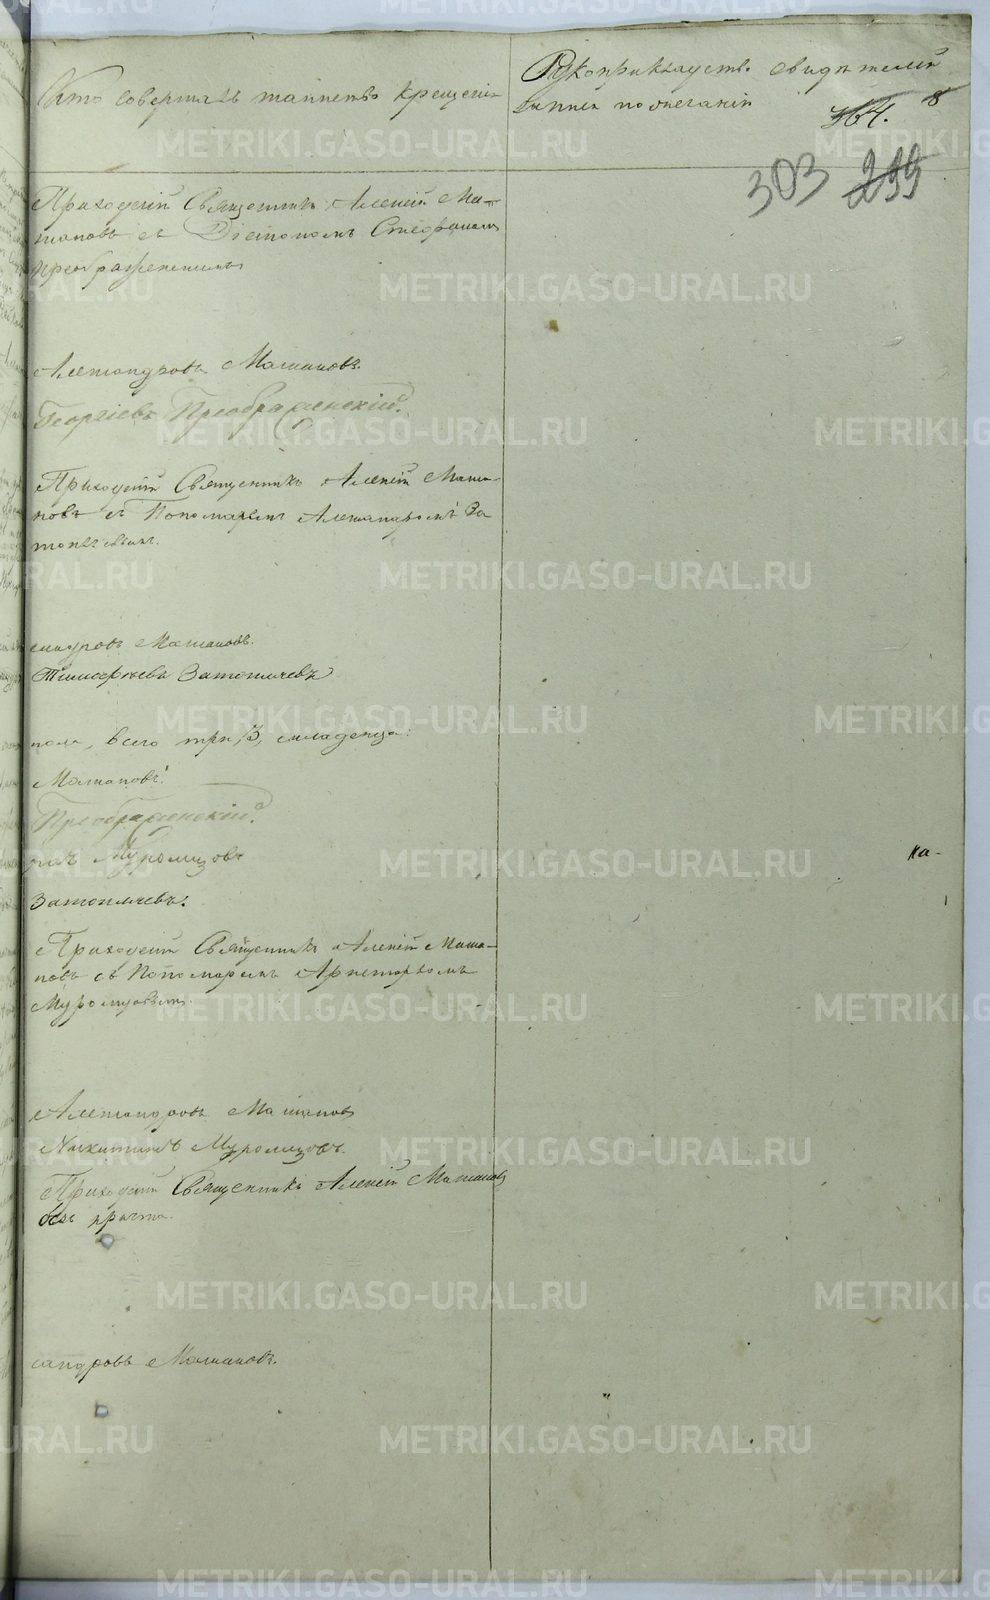 Кто совершалъ таинство крещенія
Рукоприкладство свидѣтелей
записи по желанію
364. 8
303 299
Приходскій Священникъ Алексій Ма-
шановъ съ Діакономъ Стефаномъ
Преображенскимъ
Александровъ Машановъ.
Георгіевъ Преображенскій.
Приходскій Священникъ Алексій Маша-
новъ съ Пономаремъ Александромъ За
Машановъ.
Тимофѣевъ
пола, всего три, 3, младенца:
Машановъ.
Преображенскій.
Муромцовъ
Приходскій Священникъ Алексій Маша-
новъ съ Пономаремъ Аристархомъ
Муромцовымъ.
Александровъ Машановъ
Никитинъ Муромцовъ.
Приходскій Священникъ Алексій Машановъ
безъ причта.
сандровъ Машановъ.
ка-
METRIKI.GASO-URAL.RU